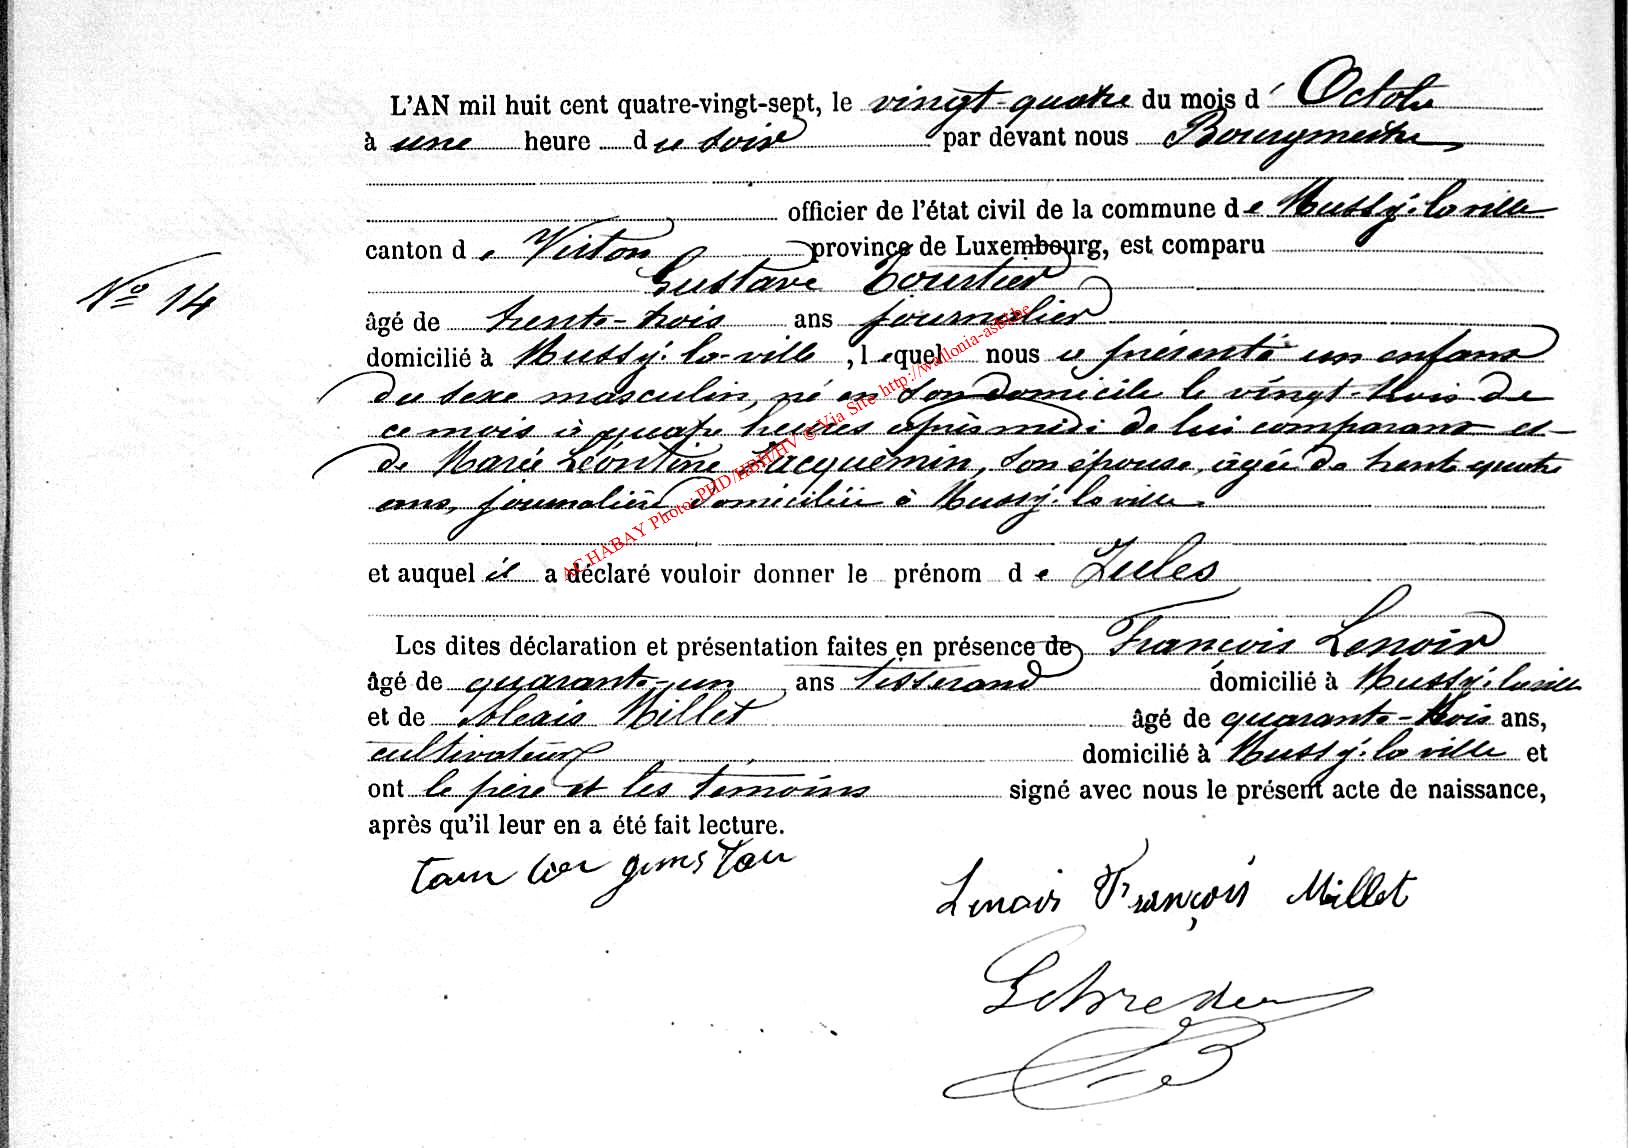 L'AN mil huit cent quatre-vingt-sept, le vingt-quatre du mois d' Octobre
à une heure du soir par devant nous Bourgmestre
officier de l'état civil de la commune de Mussy-la-ville
canton de Virton province de Luxembourg, est comparu
Gustave
N° 14
âgé de trente-trois ans journalier
domicilié à Mussy-la-ville, lequel nous a présenté un enfant
du sexe masculin, né en son domicile le vingt-trois de
ce mois à quatre heures après midi de lui comparant et
de Marie Léontine Jacquemin, son épouse, âgée de trente quatre
ans, journalière domiciliée à Mussy-la-ville.
ACHABAY Photo: PHD/HBH/HV © Via Site http://wallonia-asbl.be
et auquel il a déclaré vouloir donner le prénom de Jules
Les dites déclaration et présentation faites en présence de François Lenoir
âgé de quarante-un ans tisserand domicilié à Mussy-la-ville
et de Alexis Millet âgé de quarante-trois ans,
cultivateur domicilié à Mussy-la-ville et
ont le père et les témoins signé avec nous le présent acte de naissance,
après qu'il leur en a été fait lecture.
Lenoir François Millet